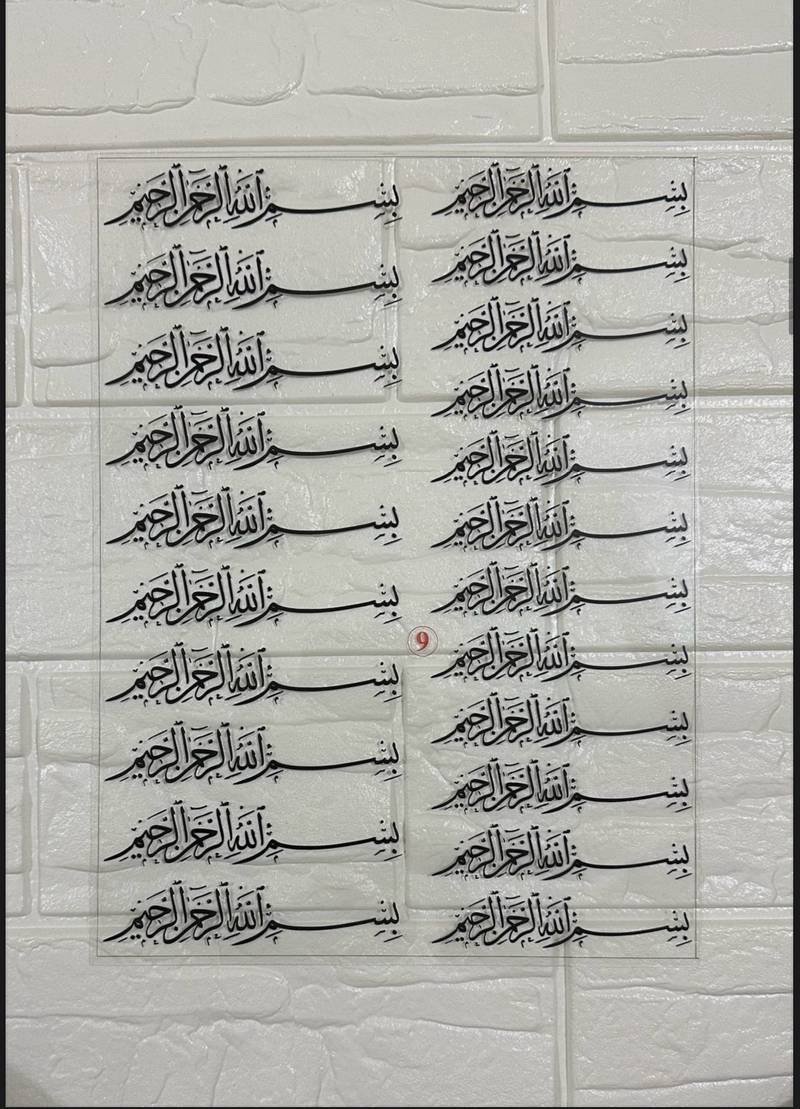 بِسْمِ اللَّهِ الرَّحْمَٰنِ الرَّحِيمِ
بِسْمِ اللَّهِ الرَّحْمَٰنِ الرَّحِيمِ
بِسْمِ اللَّهِ الرَّحْمَٰنِ الرَّحِيمِ
بِسْمِ اللَّهِ الرَّحْمَٰنِ الرَّحِيمِ
بِسْمِ اللَّهِ الرَّحْمَٰنِ الرَّحِيمِ
بِسْمِ اللَّهِ الرَّحْمَٰنِ الرَّحِيمِ
بِسْمِ اللَّهِ الرَّحْمَٰنِ الرَّحِيمِ
بِسْمِ اللَّهِ الرَّحْمَٰنِ الرَّحِيمِ
بِسْمِ اللَّهِ الرَّحْمَٰنِ الرَّحِيمِ
بِسْمِ اللَّهِ الرَّحْمَٰنِ الرَّحِيمِ
بِسْمِ اللَّهِ الرَّحْمَٰنِ الرَّحِيمِ
بِسْمِ اللَّهِ الرَّحْمَٰنِ الرَّحِيمِ
9
بِسْمِ اللَّهِ الرَّحْمَٰنِ الرَّحِيمِ
بِسْمِ اللَّهِ الرَّحْمَٰنِ الرَّحِيمِ
بِسْمِ اللَّهِ الرَّحْمَٰنِ الرَّحِيمِ
بِسْمِ اللَّهِ الرَّحْمَٰنِ الرَّحِيمِ
بِسْمِ اللَّهِ الرَّحْمَٰنِ الرَّحِيمِ
بِسْمِ اللَّهِ الرَّحْمَٰنِ الرَّحِيمِ
بِسْمِ اللَّهِ الرَّحْمَٰنِ الرَّحِيمِ
بِسْمِ اللَّهِ الرَّحْمَٰنِ الرَّحِيمِ
بِسْمِ اللَّهِ الرَّحْمَٰنِ الرَّحِيمِ
بِسْمِ اللَّهِ الرَّحْمَٰنِ الرَّحِيمِ